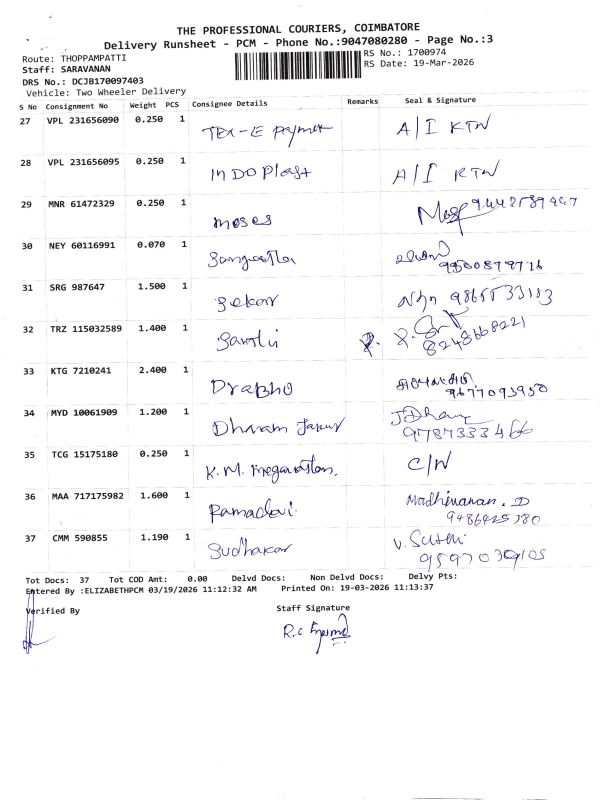 THE PROFESSIONAL COURIERS, COIMBATORE
Delivery Runsheet - PCM - Phone No.:9047080280 - Page No.:3
Route: THOPPAMPATTI RS No.: 1700974
Staff: SARAVANAN RS Date: 19-Mar-2026
DRS No.: DCJB170097403
Vehicle: Two Wheeler Delivery
S No Consignment No Weight PCS Consignee Details Remarks Seal & Signature
27 VPL 231656090 0.250 1 A/I KTN
28 VPL 231656095 0.250 1 INDO Plast A/I KTN
29 MNR 61472329 0.250 1 moses
30 NEY 60116991 0.070 1 Sangeetha
31 SRG 987647 1.500 1 Sekar 9865533183
32 TRZ 115032589 1.400 1 8248668221
33 KTG 7210241 2.400 1 Prabhu 9677093950
34 MYD 10061909 1.200 1 Dharam J.Dharam 9787333466
35 TCG 15175180 0.250 1 K.M. C/N
36 MAA 717175982 1.600 1 Ramadevi. Madhivanan. D
9486425380
37 CMM 590855 1.190 1 Sudhakar
9597039105
Tot Docs: 37 Tot COD Amt: 0.00 Delvd Docs: Non Delvd Docs: Delvy Pts:
Entered By :ELIZABETHPCM 03/19/2026 11:12:32 AM Printed On: 19-03-2026 11:13:37
Verified By Staff Signature